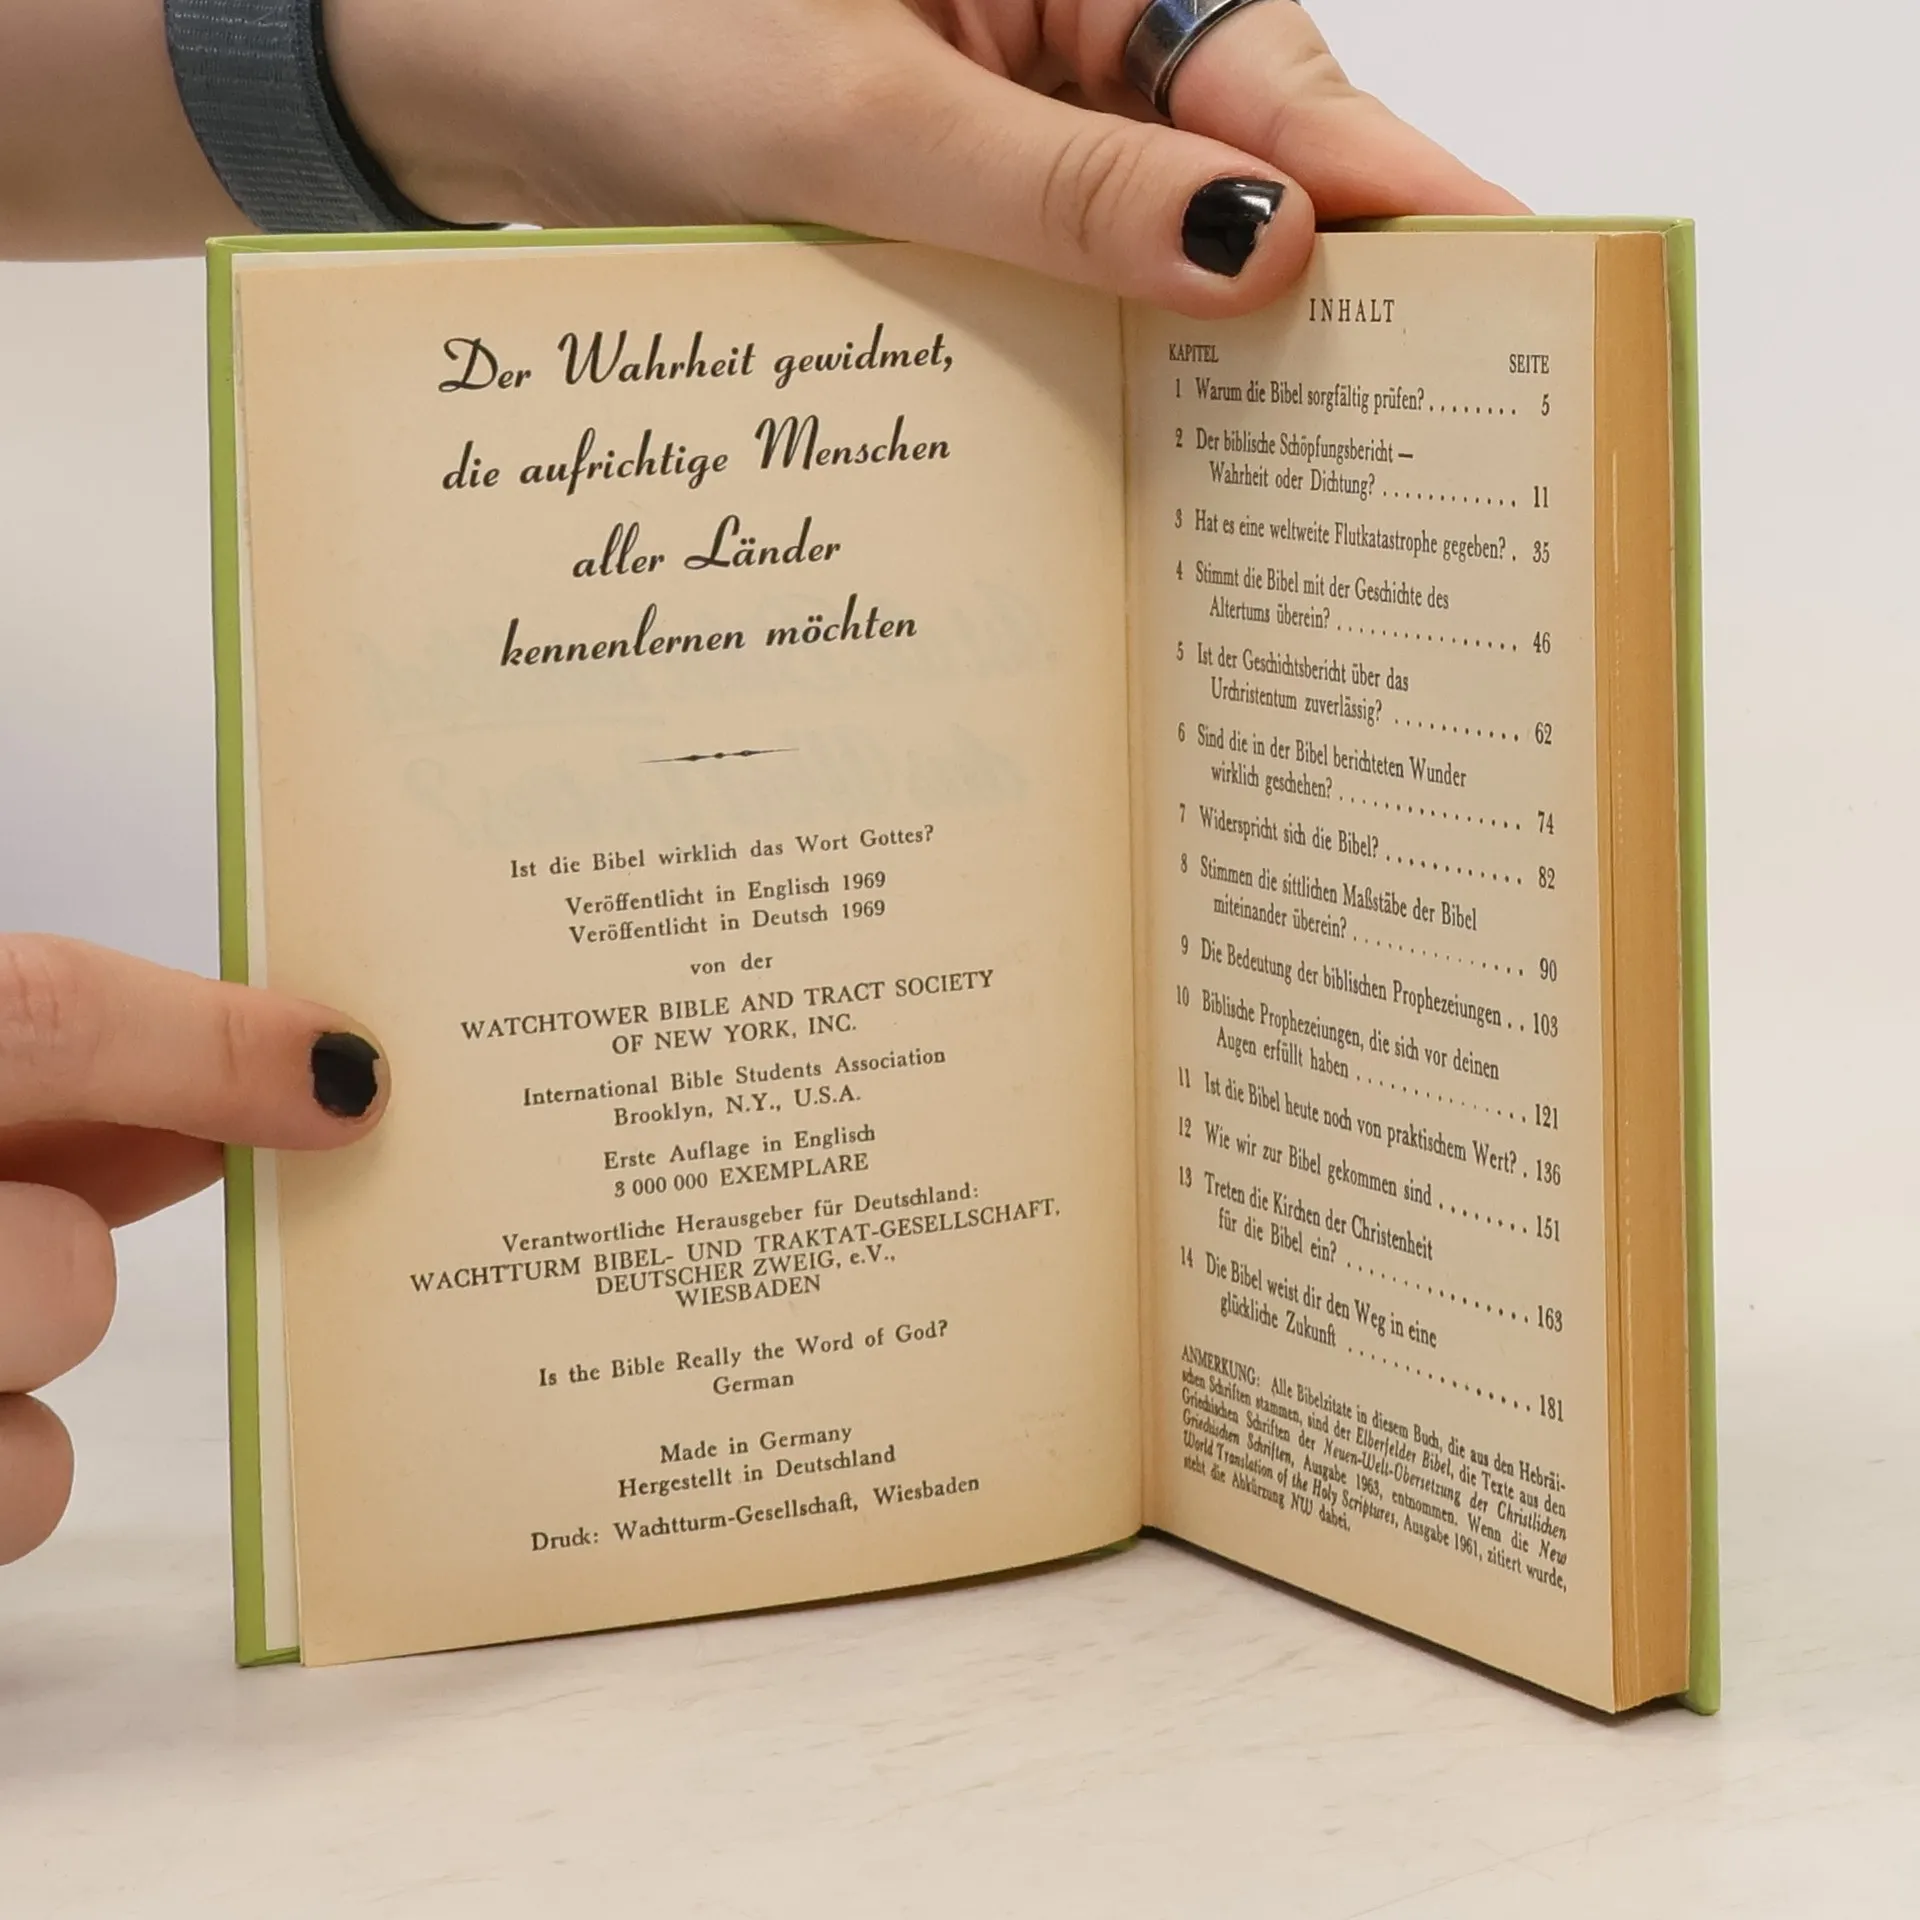 Der Wahrheit gewidmet,
die aufrichtige Menschen
aller Länder
kennenlernen möchten
Ist die Bibel wirklich das Wort Gottes?
Veröffentlicht in Englisch 1969
Veröffentlicht in Deutsch 1969
von der
WATCHTOWER BIBLE AND TRACT SOCIETY
OF NEW YORK, INC.
International Bible Students Association
Brooklyn, N.Y., U.S.A.
Erste Auflage in Englisch
3 000 000 EXEMPLARE
Verantwortliche Herausgeber für Deutschland:
WACHTTURM BIBEL- UND TRAKTAT-GESELLSCHAFT,
DEUTSCHER ZWEIG, e.V.,
WIESBADEN
Is the Bible Really the Word of God?
German
Made in Germany
Hergestellt in Deutschland
Druck: Wachtturm-Gesellschaft, Wiesbaden
INHALT
KAPITEL SEITE
1 Warum die Bibel sorgfältig prüfen? ........ 5
2 Der biblische Schöpfungsbericht —
Wahrheit oder Dichtung? ............ 11
3 Hat es eine weltweite Flutkatastrophe gegeben? . 35
4 Stimmt die Bibel mit der Geschichte des
Altertums überein? ................ 46
5 Ist der Geschichtsbericht über das
Urchristentum zuverlässig? ........... 62
6 Sind die in der Bibel berichteten Wunder
wirklich geschehen? ................ 74
7 Widerspricht sich die Bibel? ............ 82
8 Stimmen die sittlichen Maßstäbe der Bibel
miteinander überein? ............... 90
9 Die Bedeutung der biblischen Prophezeiungen . . 103
10 Biblische Prophezeiungen, die sich vor deinen
Augen erfüllt haben ............... 121
11 Ist die Bibel heute noch von praktischem Wert? . 136
12 Wie wir zur Bibel gekommen sind ........ 151
13 Treten die Kirchen der Christenheit
für die Bibel ein? ................ 163
14 Die Bibel weist dir den Weg in eine
glückliche Zukunft ................ 181
ANMERKUNG: Alle Bibelzitate in diesem Buch, die aus den Hebräi-
schen Schriften stammen, sind der Elberfelder Bibel, die Texte aus den
Griechischen Schriften der Neuen-Welt-Übersetzung der Christlichen
Griechischen Schriften, Ausgabe 1963, entnommen. Wenn die New
World Translation of the Holy Scriptures, Ausgabe 1961, zitiert wurde,
steht die Abkürzung NW dabei.